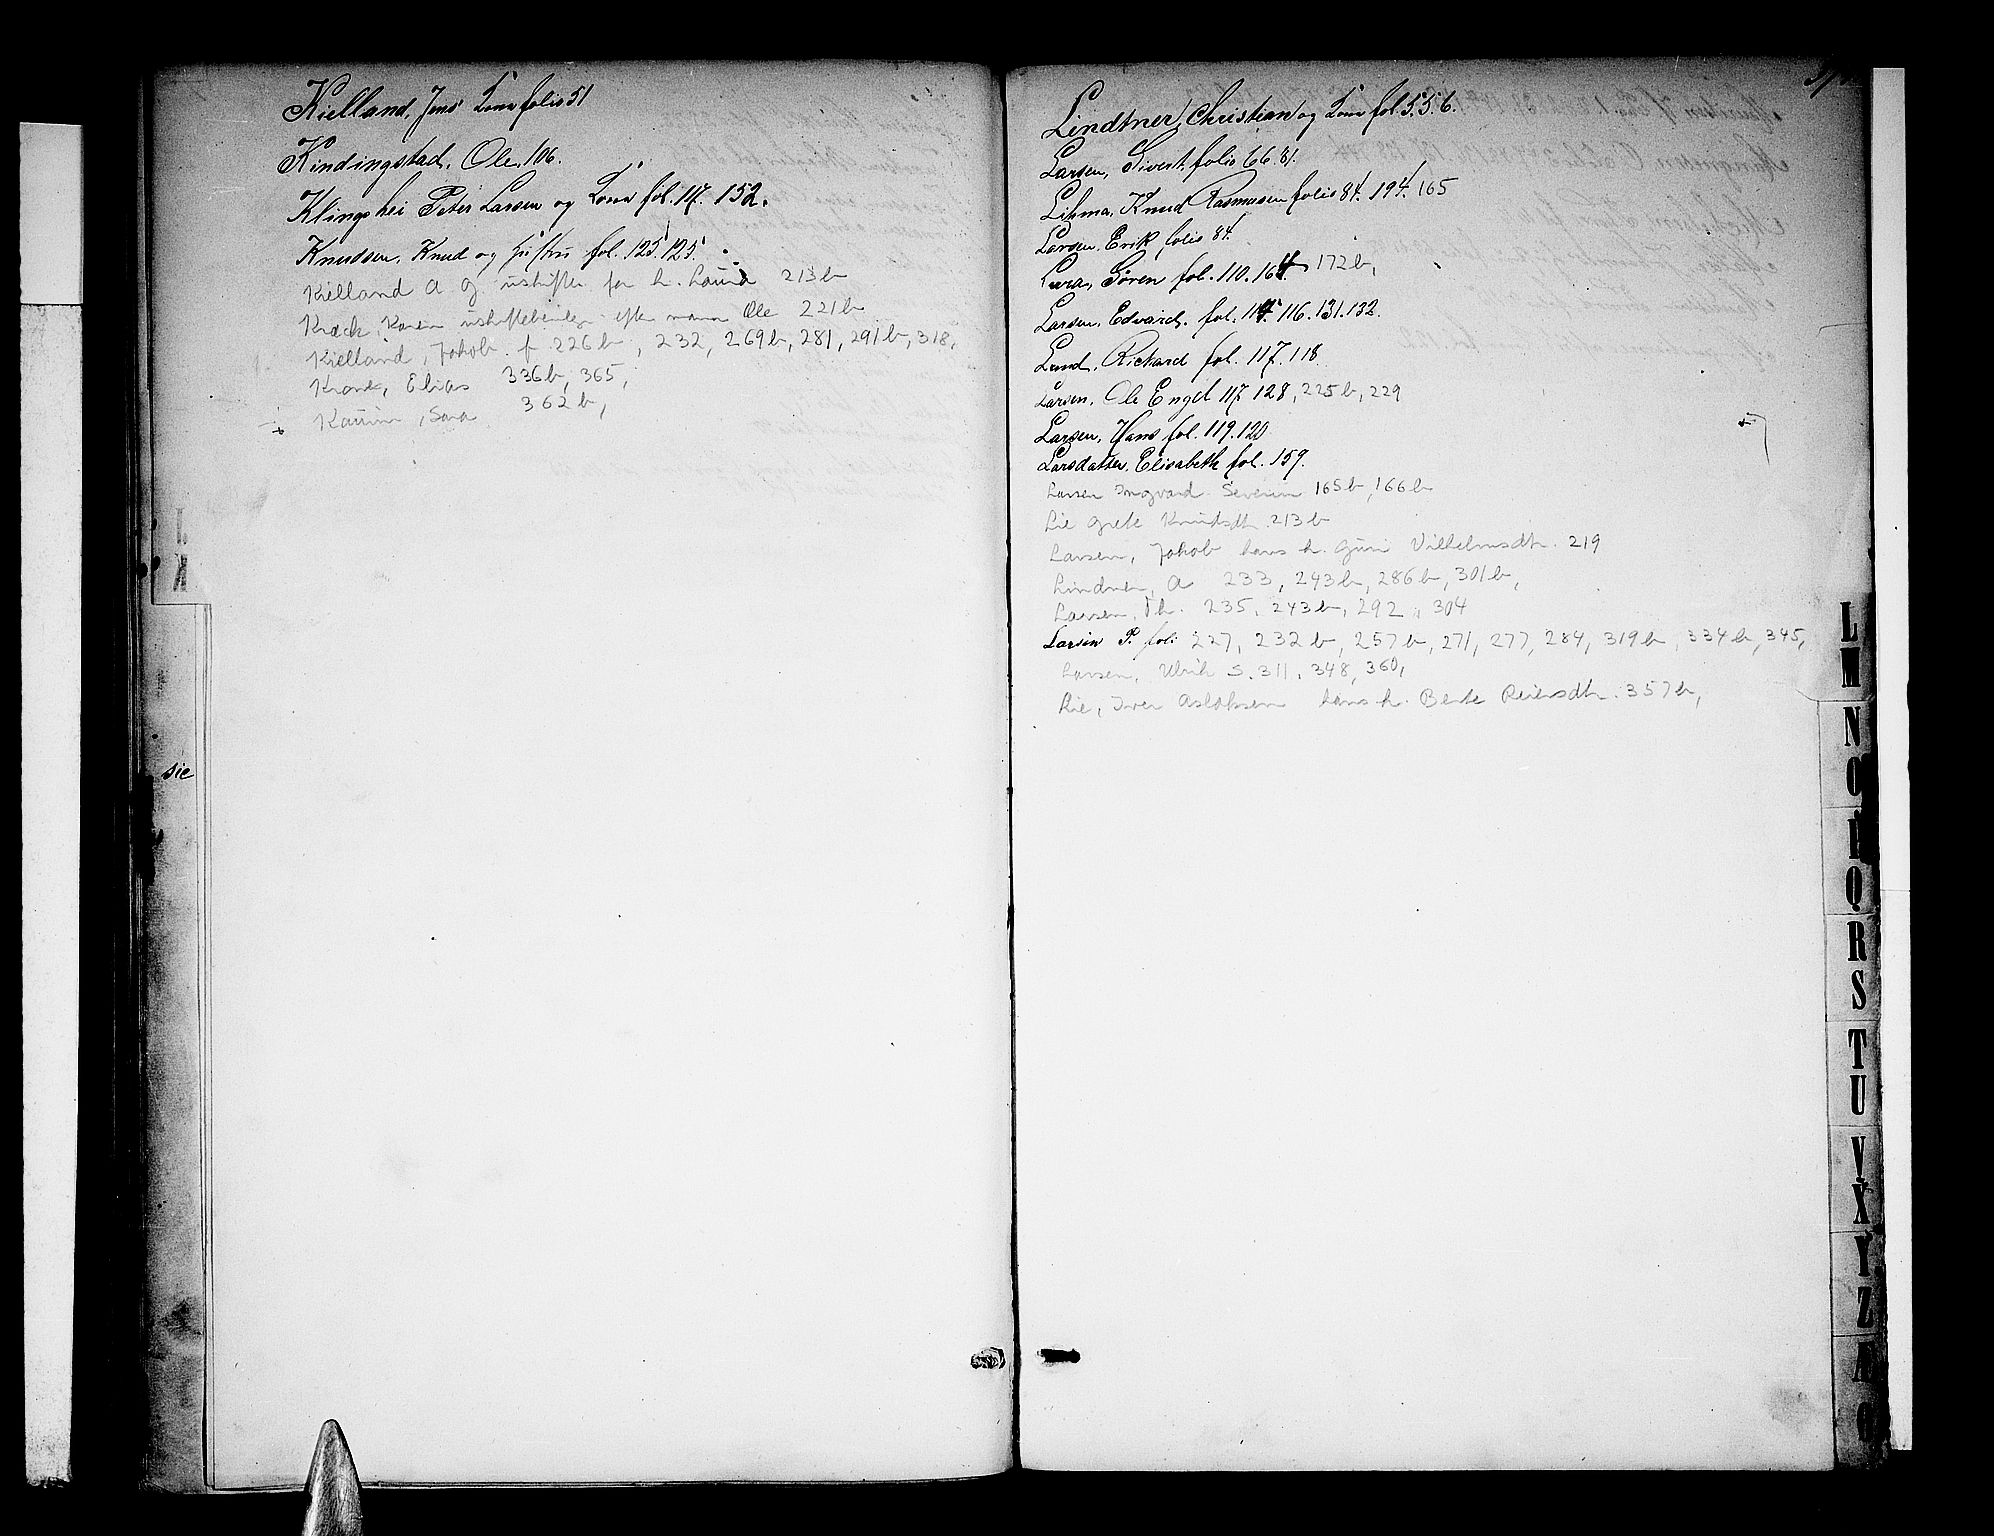 Kielland, Jens Kone folio 51
Kindingstad. Ole. 106.
Klingshei Peter Larsen og Kone fol. 117. 152.
Knudsen, Knud og Hustru fol. 125. 125.
Kielland A G. uskifte for h. Laura 213b
Krack Karen uskiftebevilg. efter mann Ole 221b
Kielland, Jakob f 226b, 232, 269b, 281, 291b, 318,
Elias 336b, 365,
Sara 362b,
L
K
sie
Lindtner, Christian og Kone fol. 5. 5. 6.
Larsen, Sivert folio 66. 81.
Lihma, Knud Rasmusen folio 84. 194. 165
Larsen. Erik folio 84.
Lura, Søren fol. 110. 164 172b,
Larsen, Edvard. fol. 114. 116. 131. 132.
Lund, Rickard fol. 117. 118
Larsen, Ole Engel 117 128, 225b, 229
Larsen, Hans fol. 119. 120
Larsdatter, Elisabeth fol. 159.
Larsen Ingvard Severin 165b, 166b
Lie Grete Knudsdtr. 213b
Larsen, Jakob hans h. Guri Vilhelmsdtr. 219
Lindner, A 233, 243b, 286b, 301b,
Larsen, Th. 235, 243b, 292, 304
Larsen P. fol: 227, 232b, 257b, 271, 277, 284, 319b, 334b, 345,
Larsen, Ulrik S. 311, 348, 360,
Lie, Iver Aslaksen hans h. Berte Reiersdtr. 357b,
L
M
N
O
P
Q
R
S
T
U
V
X
Y
Z